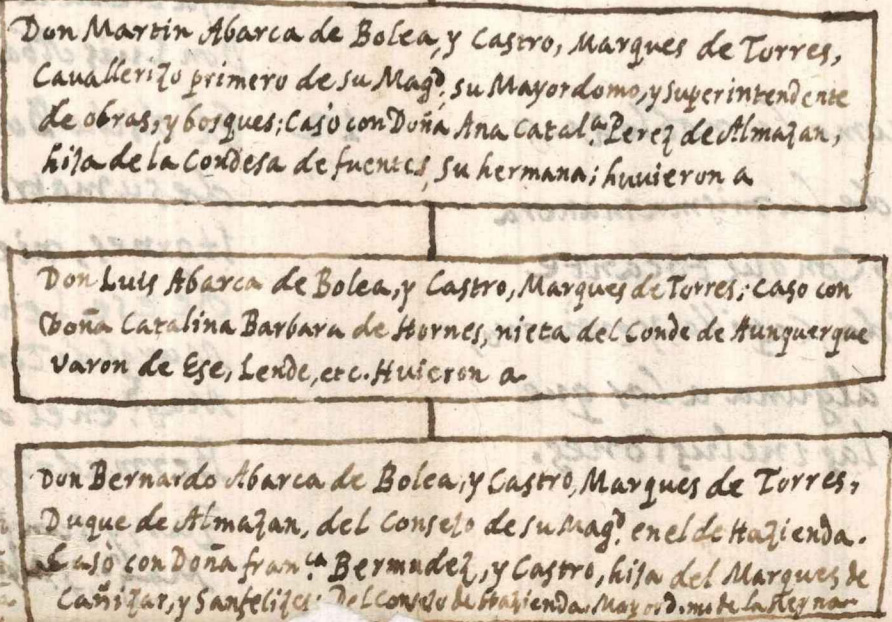 Don Martin Abarca de Bolea, y Castro, Marques de Torres,
Cavallerizo primero de su Magd. su Mayordomo, y superintendente
de obras, y bosques; Casò con Doña Ana Catal.a Perez de Almazan,
hija de la Condesa de fuentes, su hermana; huvieron a
Don Luis Abarca de Bolea, y Castro, Marques de Torres; caso con
Doña Catalina Barbara de Hornes, nieta del Conde de Aunquerque
Varon de Ese, Lende, etc. Huieron a
Don Bernardo Abarca de Bolea, y Castro, Marques de Torres,
Duque de Almazan, del Consejo de su Magd. en el de Hazienda.
Casò con Doña fran.ca Bermudez, y Castro, hija del Marques de
Cañizar, y Sanfelizes: Del Consejo de Hazienda. Mayord.mo de la Reyna